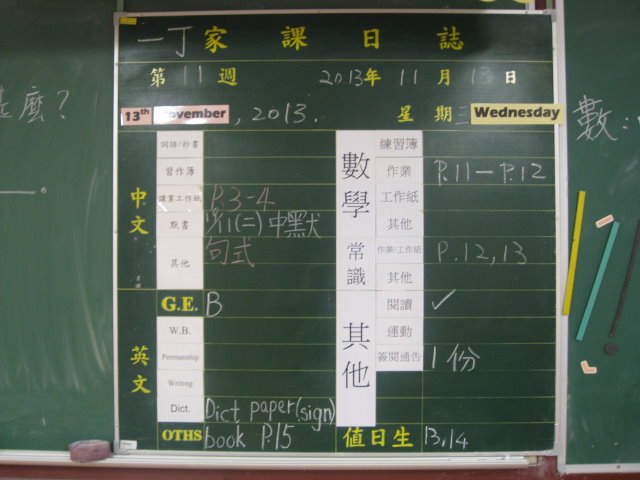 一丁家課日誌
第11週 2013年11月13日
13th November, 2013. 星期三 Wednesday
麼?
數:
中文
詞語/抄書
習作簿
課業工作紙 P.3-4
默書 (二)中默
其他 句式
G.E. B
英文
W.B.
Penmanship
Writing
Dict. Dict paper(sign)
OTHS book P.15
數學
練習簿
作業 P.11-P.12
工作紙
其他
常識
作業/工作紙 P.12,13
其他
其他
閱讀 ✓
運動
簽閱通告 1份
值日生 13,14